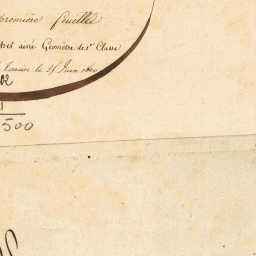 première feuille
ainé Géomètre de 1e Classe
le 25 Juin 18
02
1
500